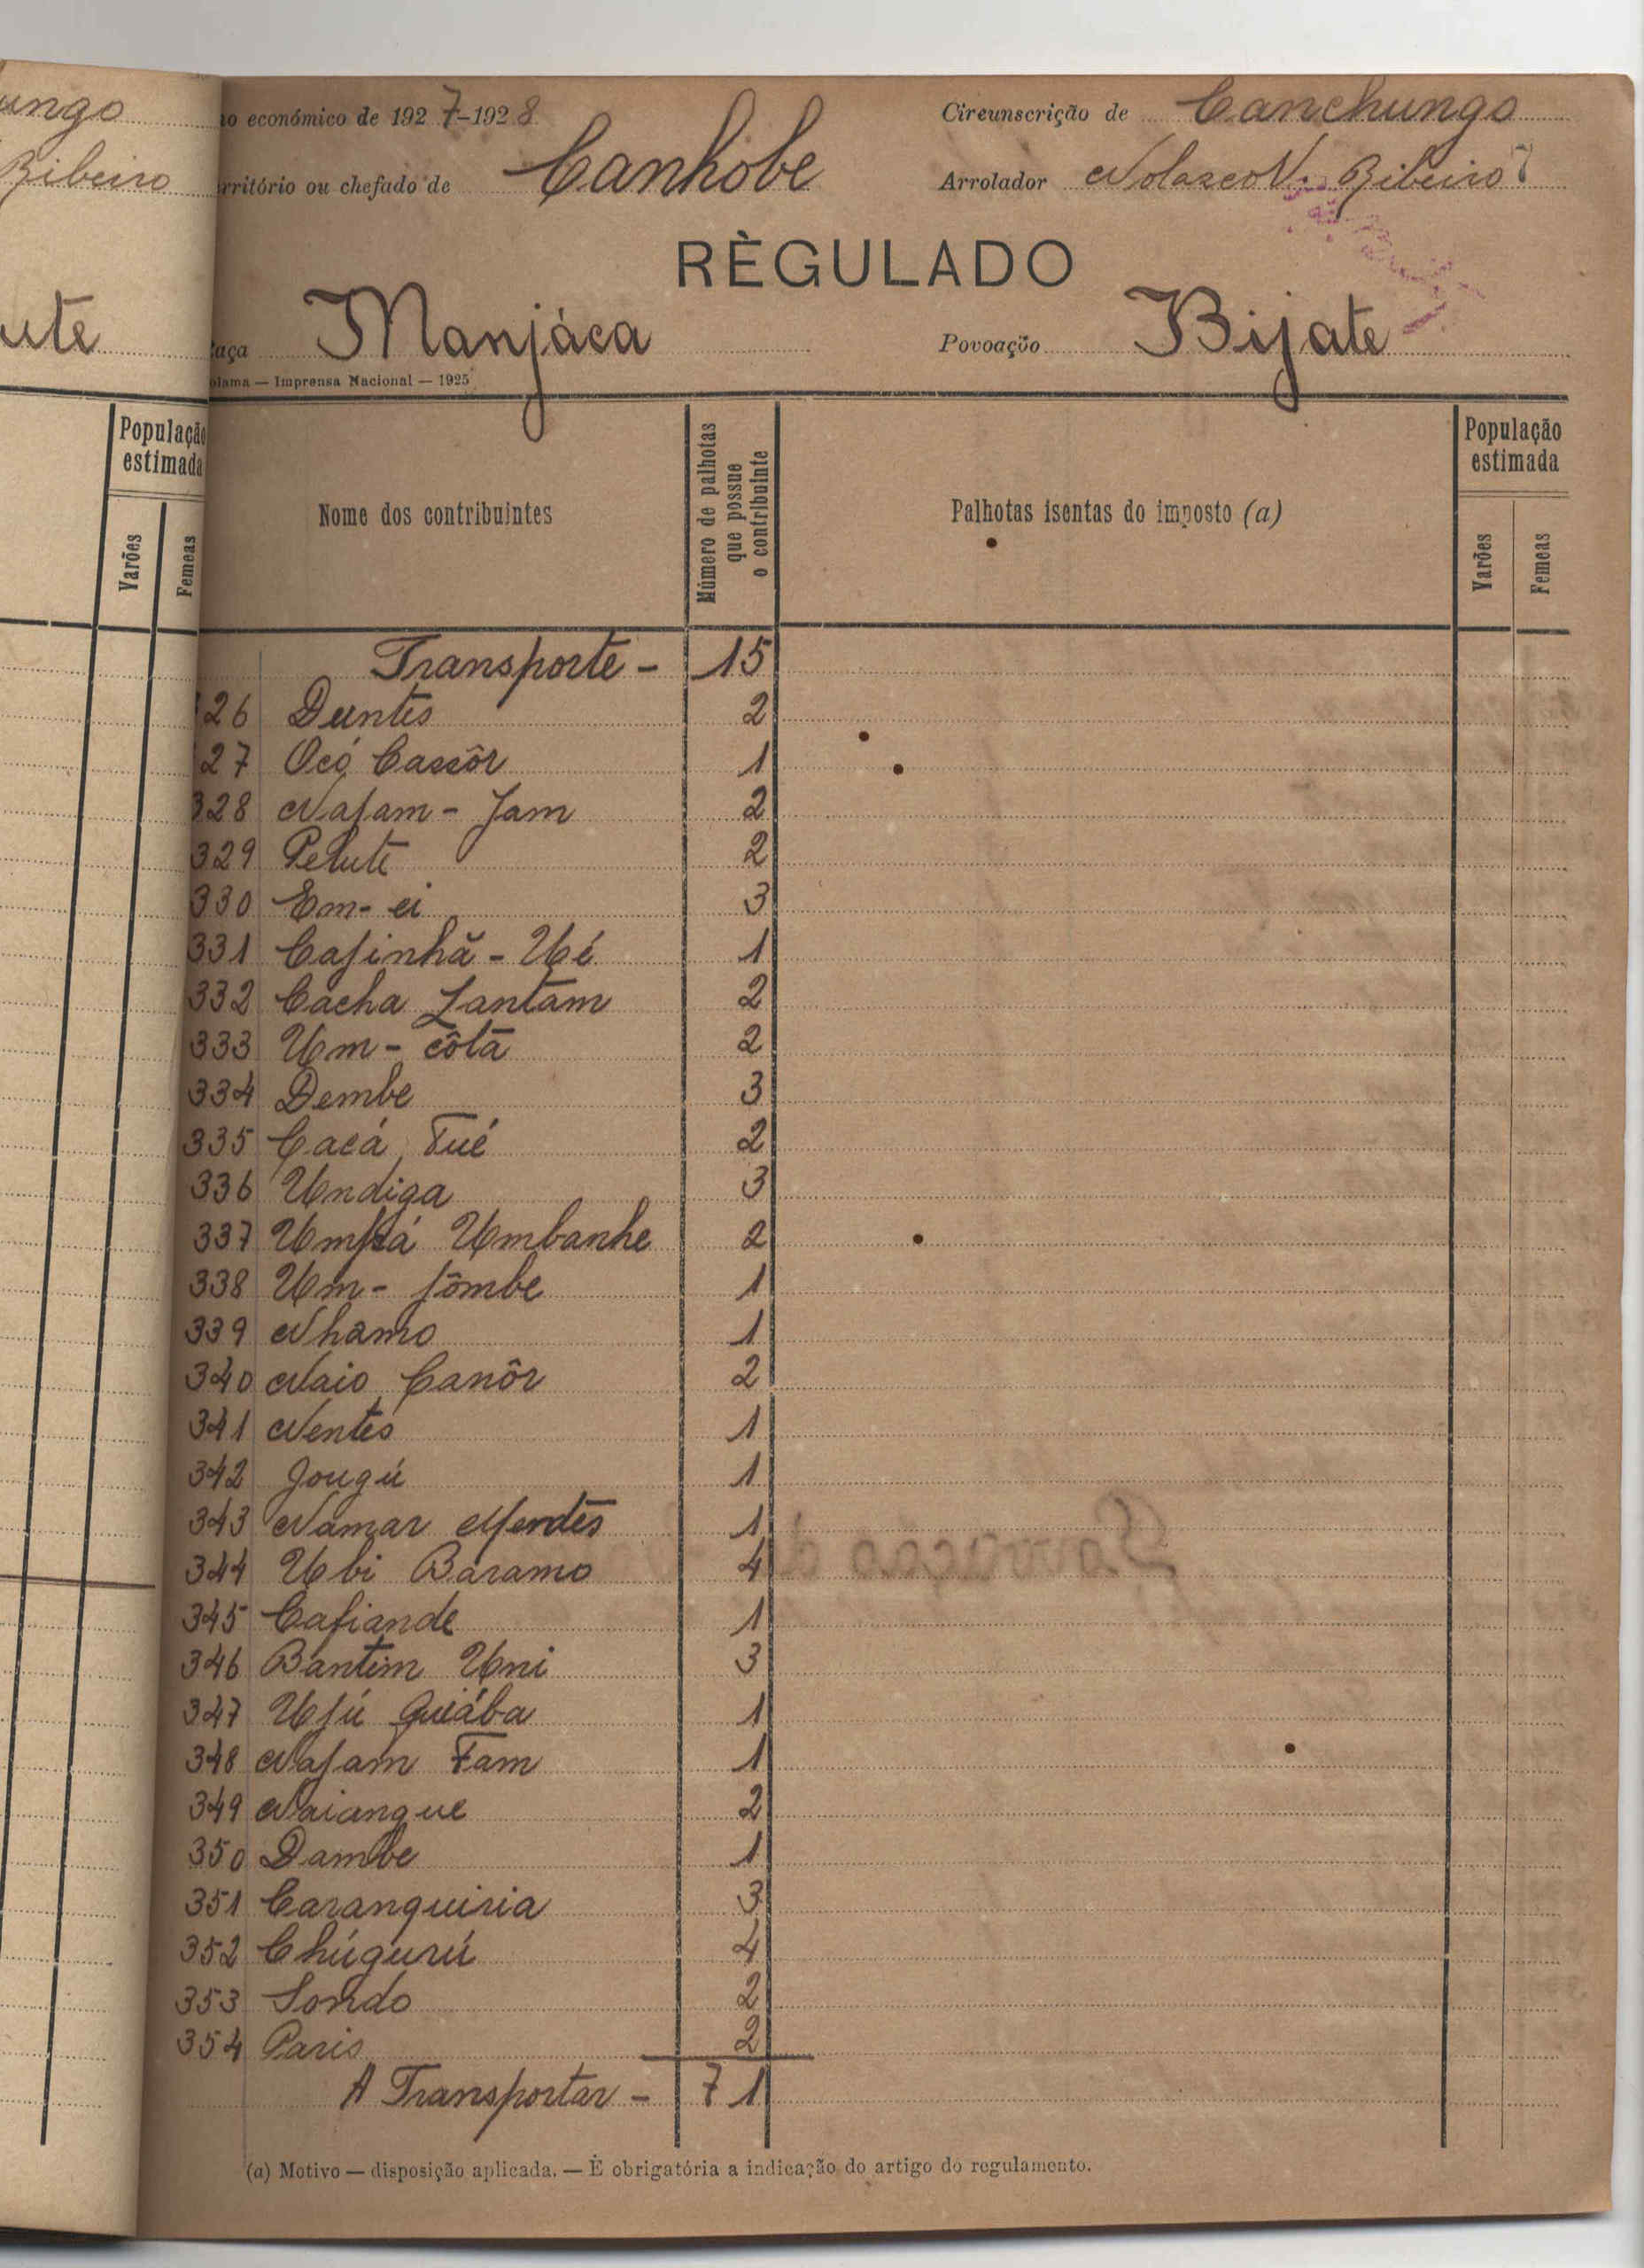 ungo
Ribeiro
ute
População
estimada
Varões
Femeas
o económico de 1927-1928
Circunscrição de Canchungo
rritório ou chefado de Canhobe
Arrolador Nolasco N. Ribeiro
RÈGULADO
aça Manjáca
Povoação Bijate
olama — Imprensa Nacional — 1925
Nome dos contribuintes
Número de palhotas que possue o contribuinte
Palhotas isentas do imposto (a)
População estimada
Varões
Femeas
Transporte - 15
26 Duntes 2
27 Ocó Cassôr 1
328 Najam - Jam 2
329 Pelute 2
330 Em-ei 3
331 Cajinhã - Ué 1
332 Cacha Lantam 2
333 Um - côta 2
334 Dembe 3
335 Cacá Tué 2
336 Undiga 3
337 Umpá Umbanhe 2
338 Um - jômbe 1
339 Nhamo 1
340 Naio Canôr 2
341 Nentes 1
342 Jougú 1
343 Namar Mendes 1
344 Ubi Baramo 4
345 Cafiande 1
346 Bantim Uni 3
347 Ujú Quiába 1
348 Najam Fam 1
349 Naiangue 2
350 Dambe 1
351 Caranquiria 3
352 Chúgurú 4
353 Sondo 2
354 Paris 2
A Transportar - 71
(a) Motivo — disposição aplicada. — É obrigatória a indicação do artigo do regulamento.